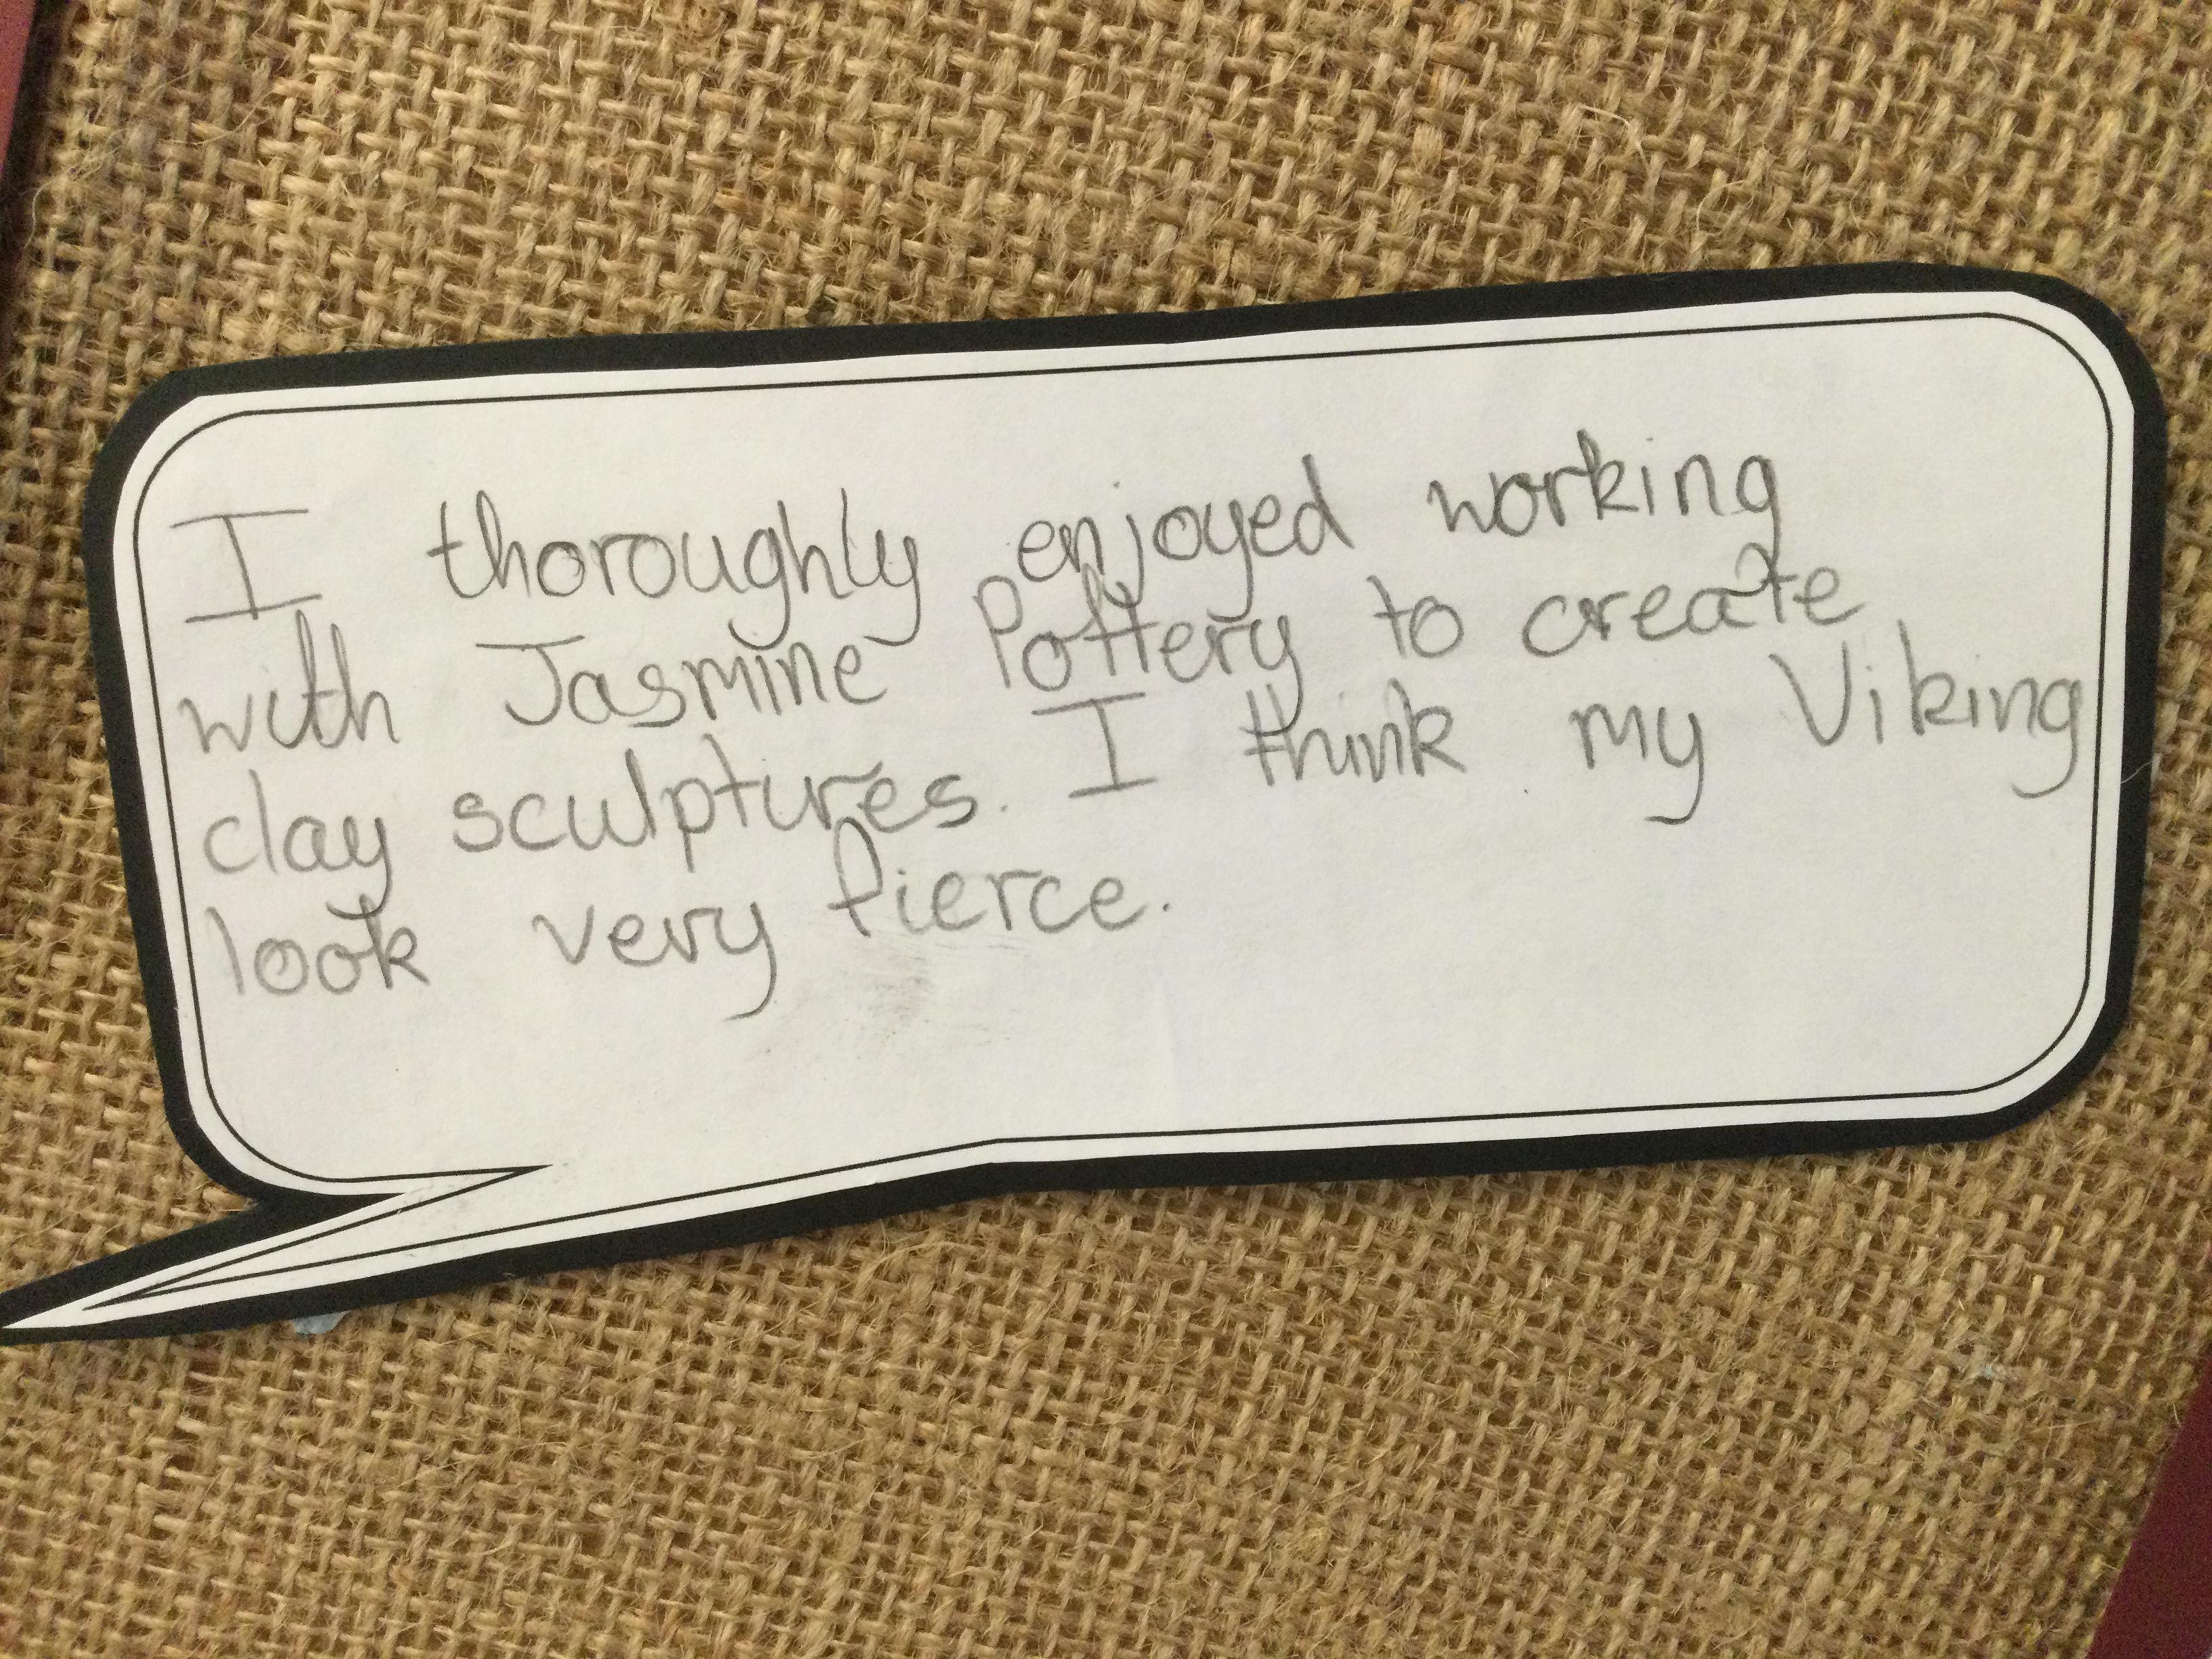 I thoroughly enjoyed working
with Jasmine Pottery to create
clay sculptures. I think my Viking
look very fierce.